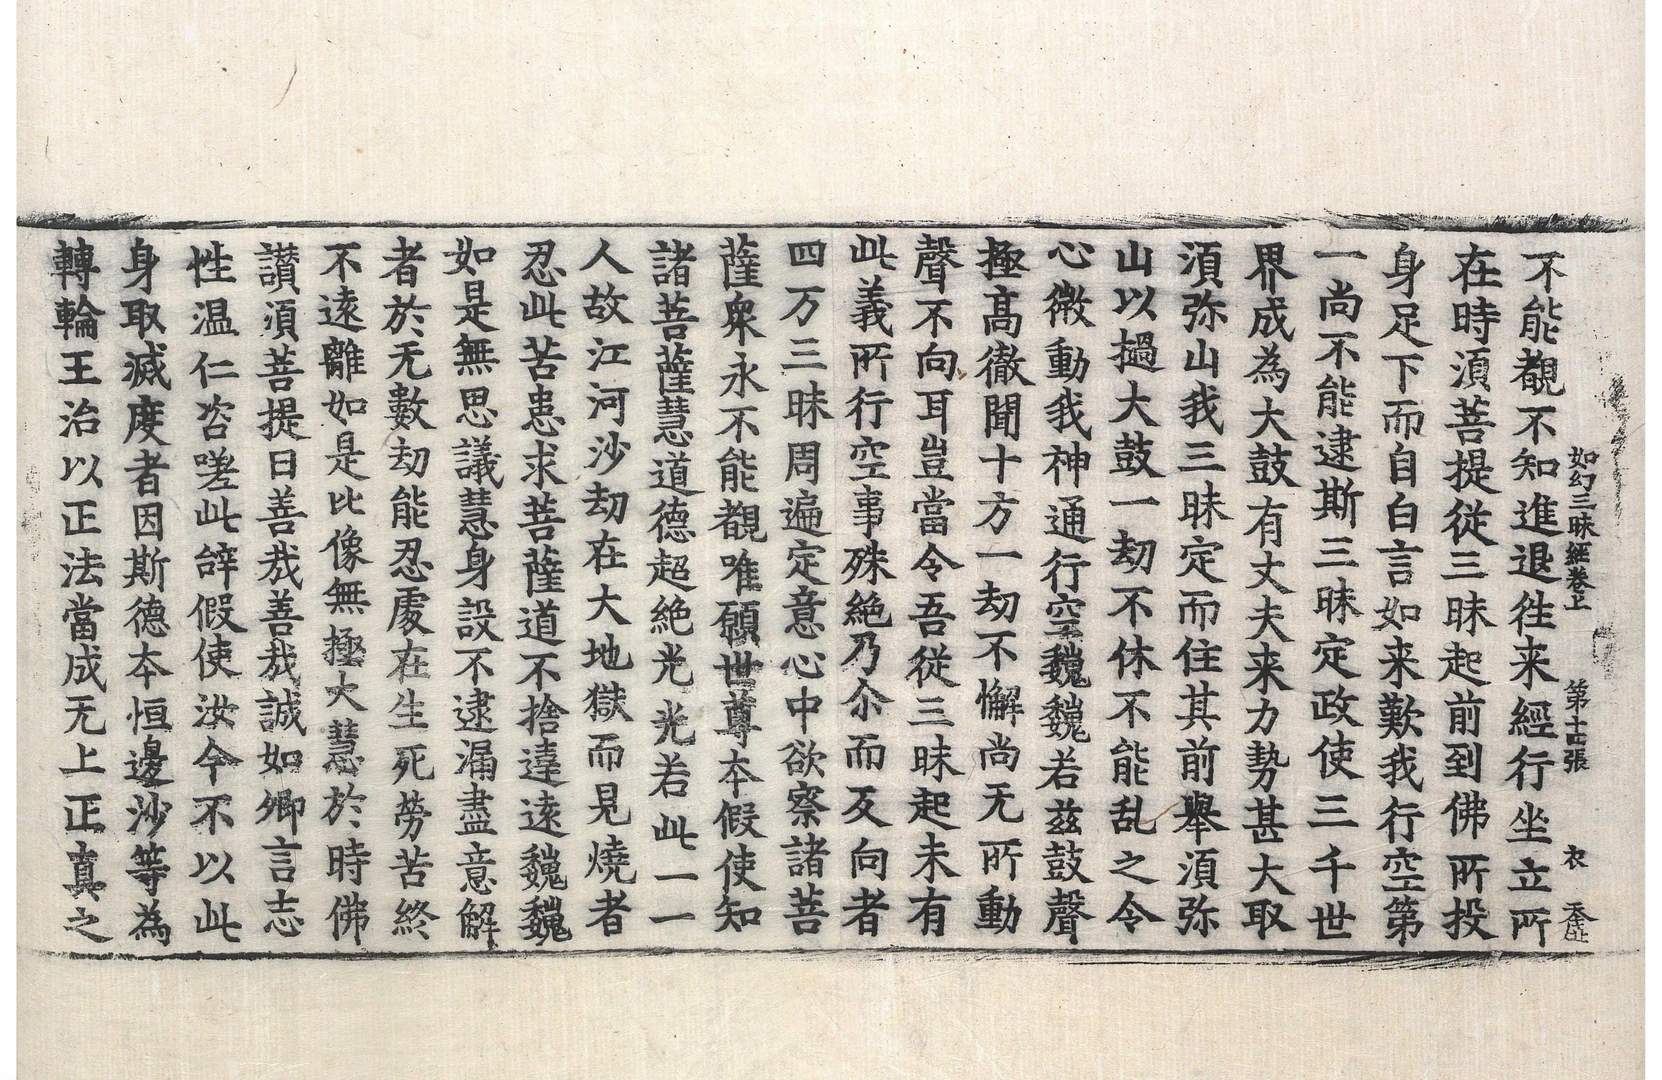 如幻三昧經卷上 第十古張 衣
不能覩不知進退往来經行坐立所
在時湏菩提従三昧起前到佛所投
身足下而自白言如来歎我行空第
一尚不能逮斯三昧定政使三千世
界成為大鼓有丈夫来力勢甚大取
湏弥山我三昧定而住其前舉湏弥
山以撾大鼓一劫不休不能乱之令
心微動我神通行空巍巍若茲鼓聲
極髙徹聞十方一劫不懈尚无所動
聲不向耳豈當令吾従三昧起未有
此義所行空事殊絶乃尒而反向者
四万三昧周遍定意心中欲察諸菩
薩衆永不能覩唯願世尊本假使知
諸菩薩慧道德超絶光光若此一一
人故江河沙劫在大地獄而見燒者
忍此苦患求菩薩道不捨達遠巍巍
如是無思議慧身設不逮漏盡意解
者於无數劫能忍處在生死勞苦終
不遠離如是比像無極大慧於時佛
讃湏菩提曰善哉善哉誠如卿言志
性温仁咨嗟此辞假使汝今不以此
身取滅度者因斯德本恒邊沙等為
轉輪王治以正法當成无上正真之